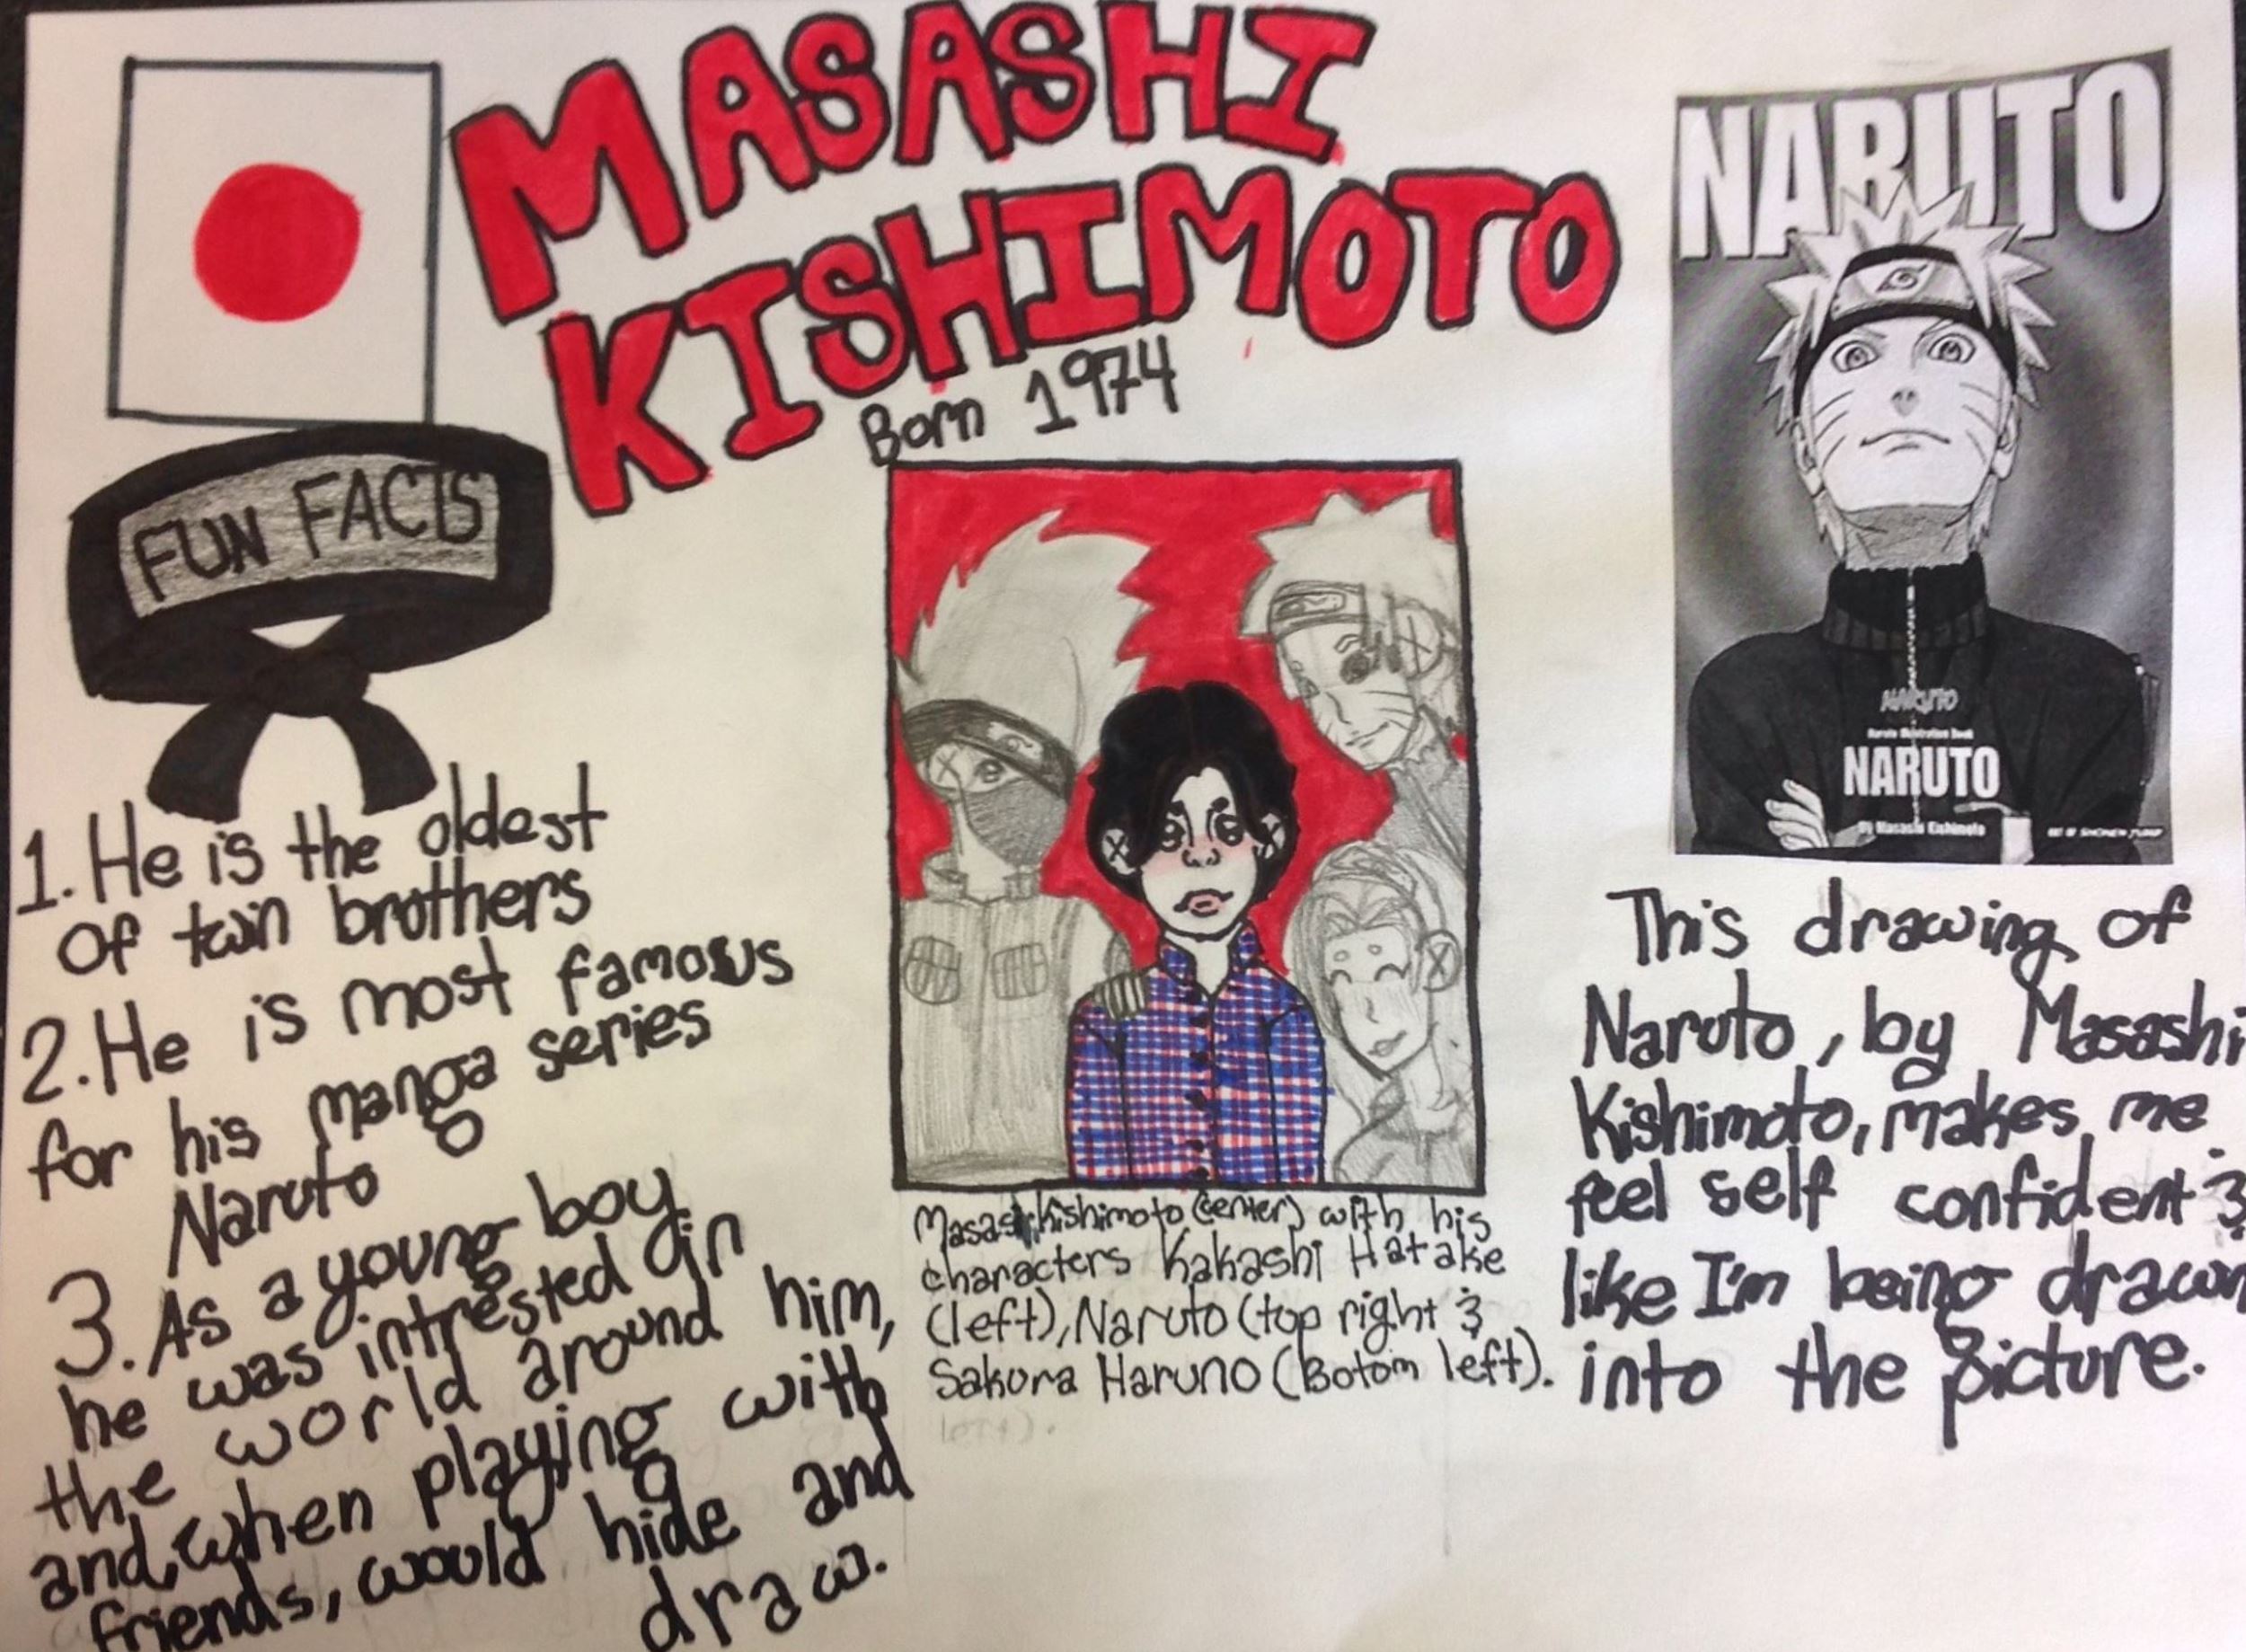 MASASHI
KISHIMOTO
Born 1974
FUN FACTS
1. He is the oldest
of twin brothers
2. He is most famous
for his manga series
Naruto
3. As a young boy
he was intrested in
the world around him,
and, when playing with
friends, would hide and
draw.
Masashi Kishimoto (center) with his
characters Kakashi Hatake
(left), Naruto (top right &
Sakura Haruno (Botom left).
left).
NARUTO
NARUTO
Naruto Illustration Book
NARUTO
By Masashi Kishimoto
ART OF SHONEN JUMP
This drawing of
Naruto, by Masashi
Kishimoto, makes me
feel self confident &
like I'm being drawn
into the picture.